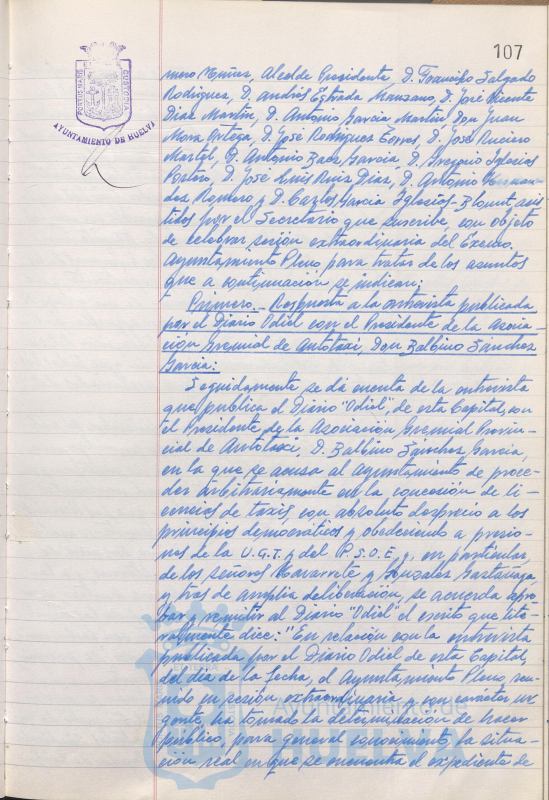 107
PORTUS MARIS CUSTODIA
AYUNTAMIENTO DE HUELVA
mero Núñez, Alcalde Presidente D. Francisco Salgado
Rodríguez, D. Andrés Estrada Manzano, D. José Vicente
Díaz Martín, D. Antonio García Martín Don Juan
Mora Ortega, D. José Rodríguez Torres, D. José Ruciero
Martel, D. Antonio Baez García, D. Gregorio Iglesias
Portero, D. José Luis Ruiz Díaz, D. Antonio Hernan-
dez Romero y D. Carlos García Iglesias-Blount, asis
tidos por el Secretario que suscribe, con objeto
de celebrar sesión extraordinaria del Excmo.
Ayuntamiento Pleno para tratar de los asuntos
que a continuación se indican:
Primero.- Respuesta a la entrevista publicada
por el Diario Odiel con el Presidente de la Asocia-
ción Gremial de Autotaxi, Don Balbino Sánchez
García:
Seguidamente se dá cuenta de la entrevista
que publica el Diario "Odiel", de esta Capital, con
el Presidente de la Asociación Gremial Provin-
cial de Autotaxi, D. Balbino Sánchez García,
en la que se acusa al Ayuntamiento de proce-
der arbitrariamente en la concesión de li-
cencias de taxis, con absoluto desprecio a los
principios democráticos y obedeciendo a presio-
nes de la U.G.T. y del P.S.O.E. y, en particular,
de los señores Navarrete y González Gastañaga
y, tras de amplia deliberación, se acuerda apro-
bar y remitir al Diario "Odiel" el escrito que lite-
ralmente dice: "En relación con la entrevista
publicada por el Diario Odiel de esta Capital,
del día de la fecha, el Ayuntamiento Pleno, reu-
nido en sesión extraordinaria y con carácter ur
gente, ha tomado la determinación de hacer
público, para general conocimiento, la situa-
ción real en que se encuentra el expediente de
Ayuntamiento de
HUELVA